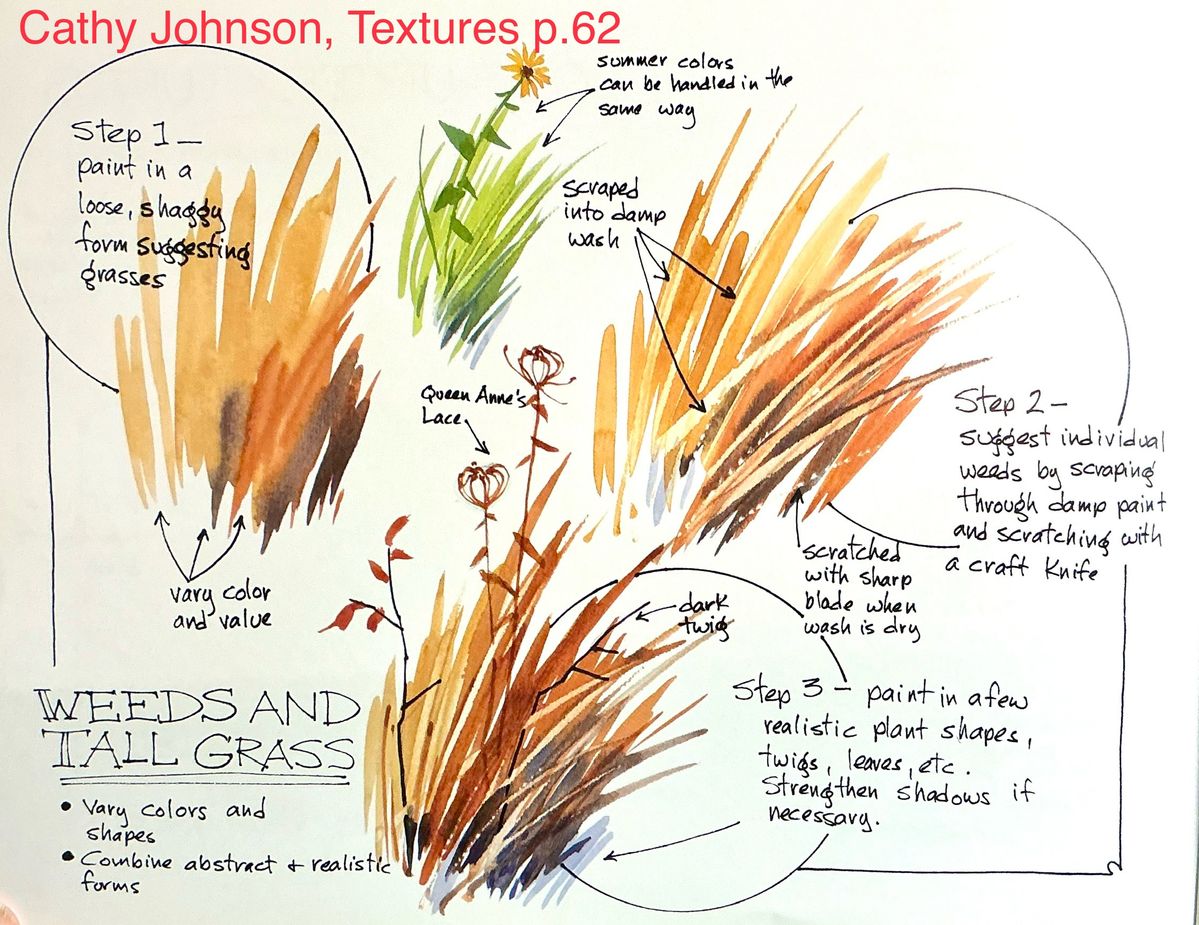 Cathy Johnson, Textures p.62
summer colors
can be handled in the
same way
Step 1 —
paint in a
loose, shaggy
form suggesting
grasses
scraped
into damp
wash
Queen Anne's
Lace
Step 2 —
suggest individual
weeds by scraping
through damp paint
and scratching with
a craft knife
vary color
and value
scratched
with sharp
blade when
wash is dry
dark
twig
Step 3 — paint in a few
realistic plant shapes,
twigs, leaves, etc.
Strengthen shadows if
necessary.
WEEDS AND
TALL GRASS
• Vary colors and
shapes
• Combine abstract + realistic
forms